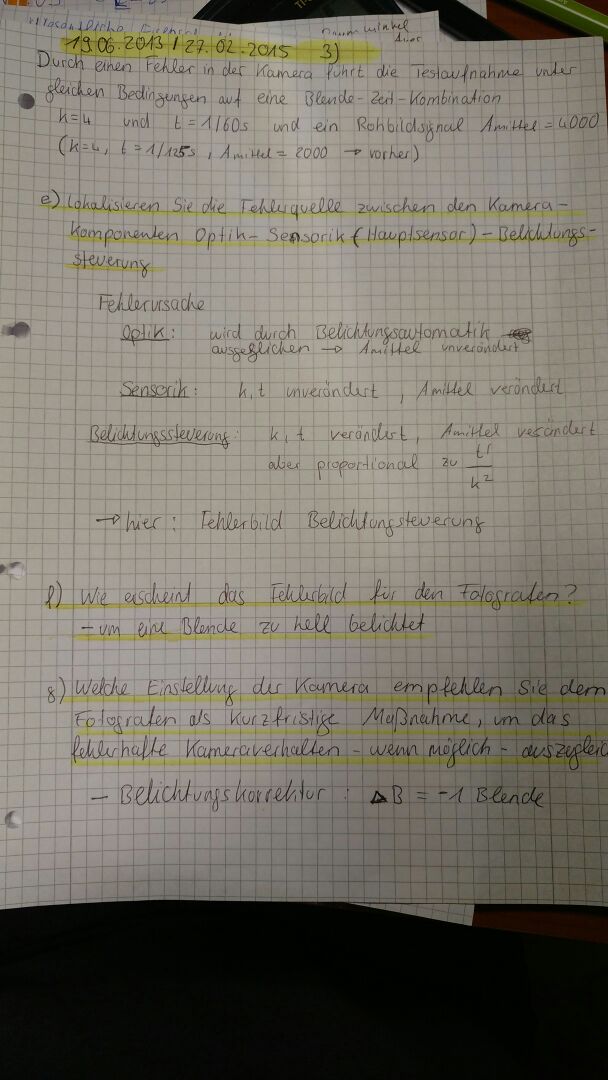 19.06.2013 / 27.02.2015 3)
Durch einen Fehler in der Kamera führt die Testaufnahme unter
gleichen Bedingungen auf eine Blende-Zeit-Kombination
k=4 und t=1/60s und ein Rohbildsignal Amittel = 4000
(k=4, t=1/125s, Amittel = 2000 → vorher)
e) Lokalisieren Sie die Fehlerquelle zwischen den Kamera-
komponenten Optik - Sensorik (Hauptsensor) - Belichtungs-
steuerung
Fehlerursache
Optik: wird durch Belichtungsautomatik
ausgeglichen → Amittel unverändert
Sensorik: k,t unverändert, Amittel verändert
Belichtungssteuerung: k, t verändert, Amittel verändert
aber proportional zu
k²
→ hier: Fehlerbild Belichtungsteuerung
f) Wie erscheint das Fehlerbild für den Fotografen?
- um eine Blende zu hell belichtet
g) Welche Einstellung der Kamera empfehlen Sie dem
Fotografen als kurzfristige Maßnahme, um das
fehlerhafte Kameraverhalten - wenn möglich -
- Belichtungskorrektur: ΔB = -1 Blende